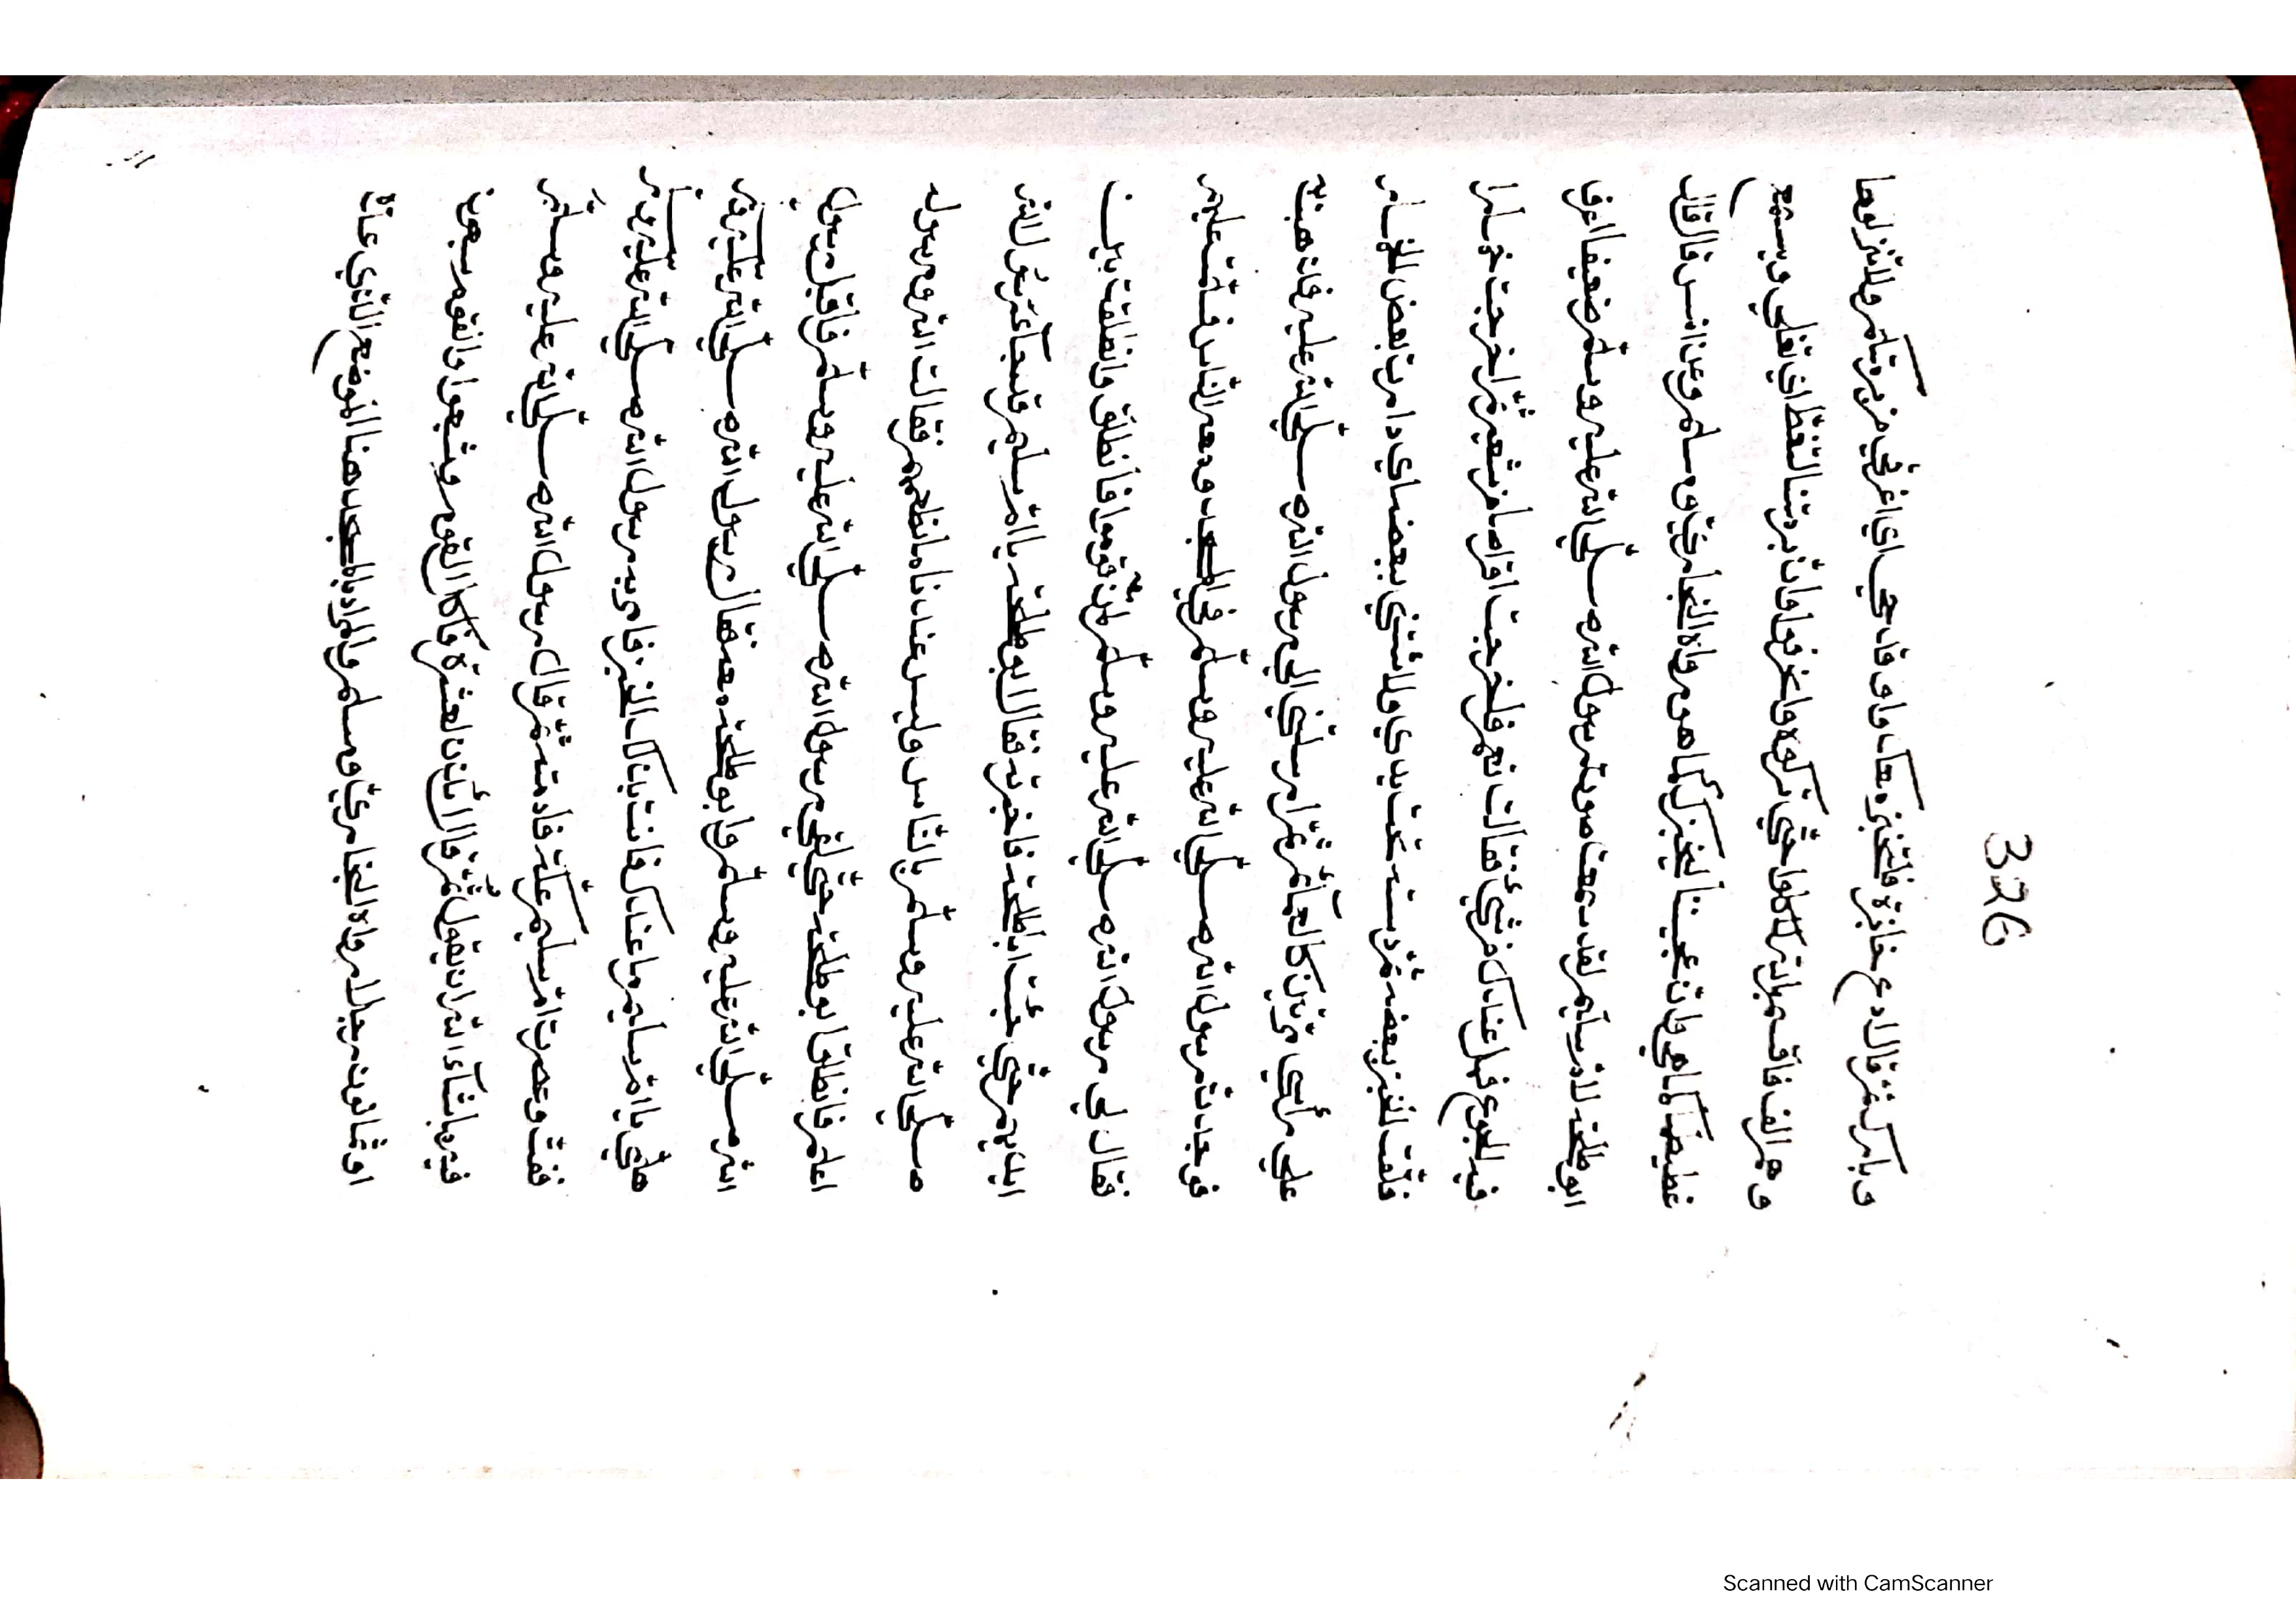 وبارك ثم قال ادع خابزة فلتخبز معك واقدحي اي اغرفي من برمتكم ولا تنزلوها
وهم الف فاقسم بالله لاكلوا حتي تركوه وانحرفوا وان برمتنا لتغط اي تغلي ويسمع
غطيطها كما هي وان عجيننا ليخبز كما هو رواه البخاري ومسلم وعن انس قال قال
ابو طلحة لام سليم لقد سمعت صوت رسول الله صلي الله عليه وسلم ضعيفا اعرف
فيه الجوع فهل عندك من شيء فقالت نعم فاخرجت اقراصا من شعير ثم اخرجت خمارا
فلفت الخبز ببعضه ثم دسته تحت يدي ولاثتني ببعضه اي دارت بعض الخمار
علي رأسي مرتين كالعمامة ثم ارسلتني الي رسول الله صلي الله عليه فذهبت به
فوجدت رسول الله صلي الله عليه وسلم في المسجد ومعه الناس فسلمت عليهم
فقال لي رسول الله صلي الله عليه وسلم لمن قوموا فانطلق وانطلقت بين
ايديهم حتي جئت ابا طلحة فاخبرته فقال ابو طلحة يا ام سليم قد جآء رسول الله
صلي الله عليه وسلم بالناس وليس عندنا ما نطعمهم فقالت الله ورسوله
اعلم فانطلق ابو طلحة حتي لقي رسول الله صلي الله عليه وسلم فاقبل رسول
الله صلي الله عليه وسلم وابو طلحة معه فقال رسول الله صلي الله عليه وسلم
هلمي يا ام سليم ما عندك فاتت بذلك الخبز فامر به رسول الله صلي الله عليه وسلم
ففت وعصرت ام سليم عكة فادمته ثم قال رسول الله صلي الله عليه وسلم
فيه ما شآء الله ان يقول ثم قال ائذن لعشرة فاكل القوم وشبعوا والقوم سبعون
او ثمانون رجلا رواه البخاري ومسلم والمراد بالمسجد هنا الموضع الذي
326
Scanned with CamScanner